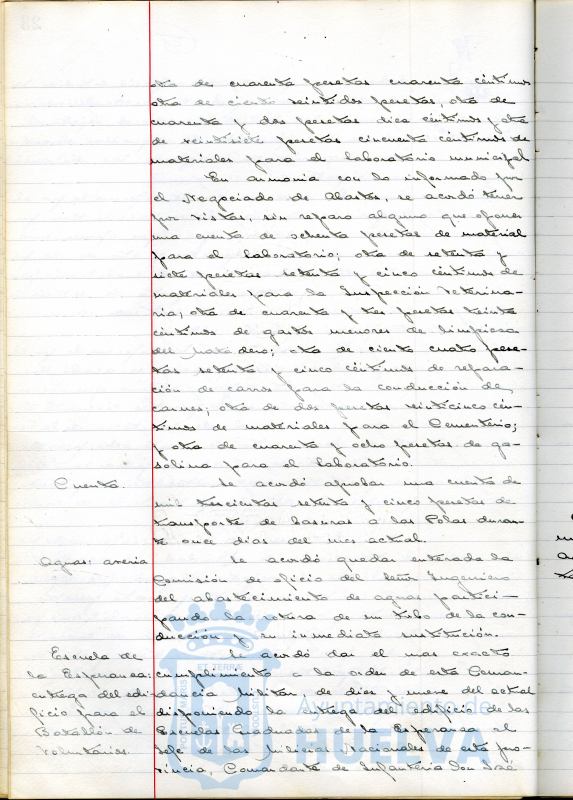 otra de cuarenta pesetas cuarenta céntimos
otra de ciento veintidos pesetas, otra de
cuarenta y dos pesetas diez céntimos y otra
de veintisiete pesetas cincuenta céntimos de
materiales para el laboratorio municipal
En armonia con lo informado por
el Negociado de Abastos, se acordó tener
por vistas, sin reparo alguno que oponer
una cuenta de ochenta pesetas de material
para el laboratorio; otra de setenta y
siete pesetas setenta y cinco céntimos de
materiales para la Inspección Veterina-
ria; otra de cuarenta y tres pesetas treinta
céntimos de gastos menores de limpieza
del Matadero; otra de ciento cuatro pese-
tas setenta y cinco céntimos de repara-
ción de carros para la conducción de
carnes; otra de dos pesetas veinticinco cén-
timos de materiales para el Cementerio;
y otra de cuarenta y ocho pesetas de ga-
solina para el laboratorio.
Cuenta.
Se acordó aprobar una cuenta de
mil trescientas setenta y cinco pesetas de
transporte de basuras a las Polas duran-
te once dias del mes actual.
Aguas: averia
Se acordó quedar enterada la
Comisión de oficio del Señor Ingeniero
del abastecimiento de aguas partici-
pando la rotura de un tubo de la con-
ducción y su inmediata sustitución.
Escuela de
la Esperanza:
entrega del edi-
ficio para el
Batallón de
Voluntarios.
Se acordó dar el mas exacto
cumplimiento a la orden de esta Coman-
dancia Militar, de diez y nueve del actual
disponiendo la entrega del edificio de las
Escuelas Graduadas de la Esperanza al
Jefe de las Milicias Nacionales de esta pro-
vincia, Comandante de Infanteria Don José
Ayuntamiento de
HUELVA